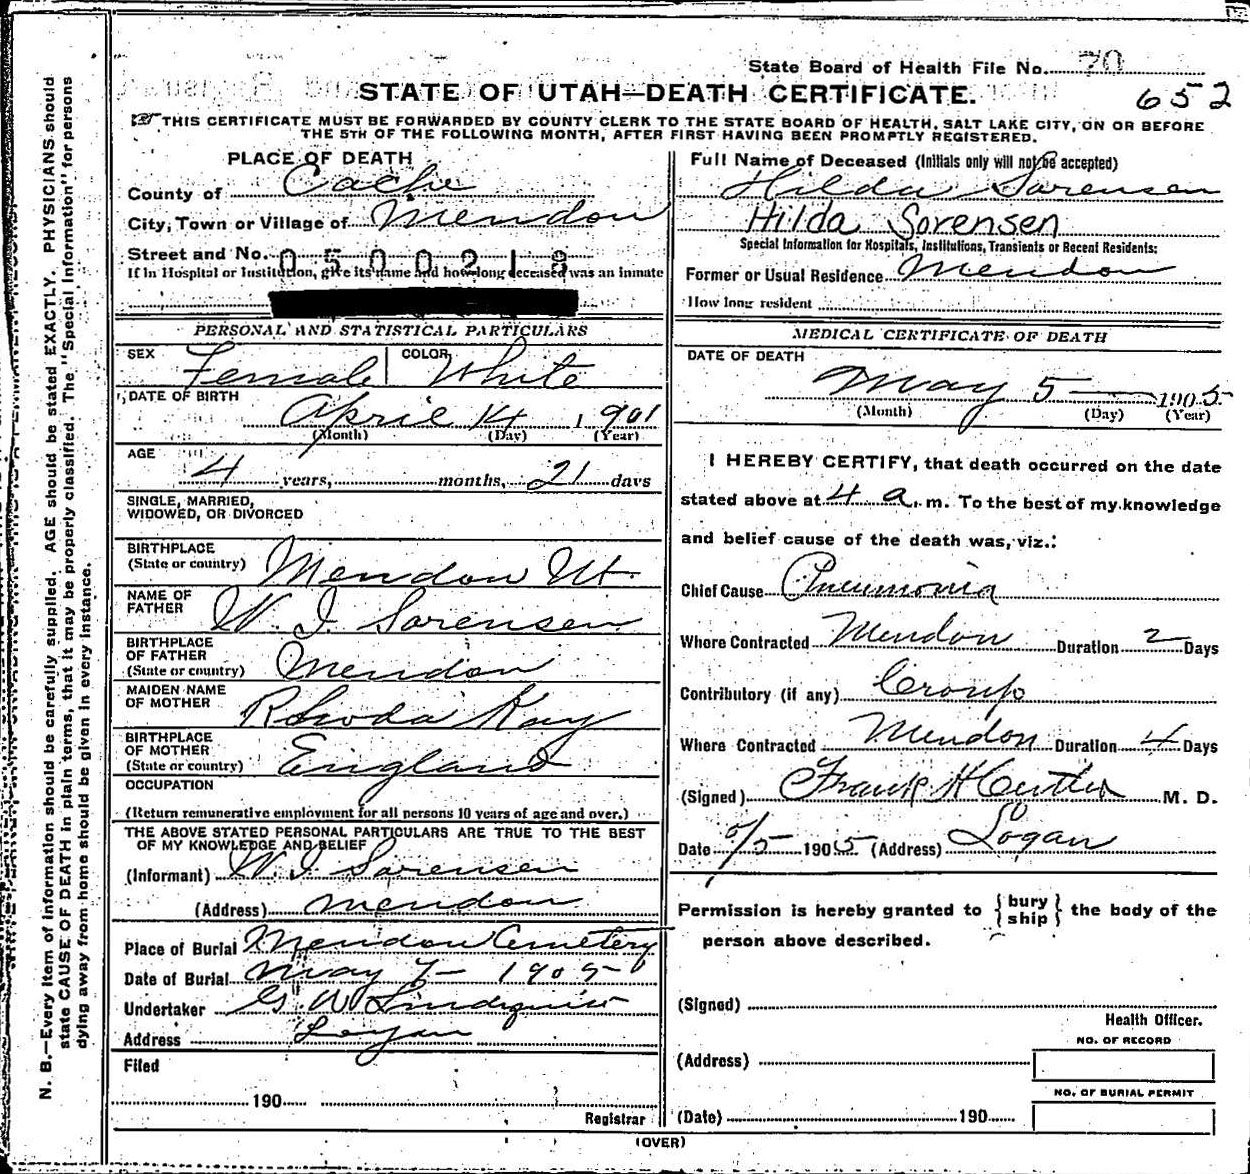 State Board of Health File No. 70
652
STATE OF UTAH—DEATH CERTIFICATE.
THIS CERTIFICATE MUST BE FORWARDED BY COUNTY CLERK TO THE STATE BOARD OF HEALTH, SALT LAKE CITY, ON OR BEFORE
THE 5TH OF THE FOLLOWING MONTH, AFTER FIRST HAVING BEEN PROMPTLY REGISTERED.
PLACE OF DEATH
County of Cache
City, Town or Village of Mendon
Street and No. 0500218
If in Hospital or Institution, give its name and how long deceased was an inmate
PERSONAL AND STATISTICAL PARTICULARS
SEX Female COLOR White
DATE OF BIRTH April 14, 1901
(Month) (Day) (Year)
AGE
4 years, months, 21 days
SINGLE, MARRIED,
WIDOWED, OR DIVORCED
BIRTHPLACE
(State or country) Mendon Ut.
NAME OF
FATHER W. I. Sorensen
BIRTHPLACE
OF FATHER
(State or country) Mendon
MAIDEN NAME
OF MOTHER Rhoda Kay
BIRTHPLACE
OF MOTHER
(State or country) England
OCCUPATION
(Return remunerative employment for all persons 10 years of age and over.)
THE ABOVE STATED PERSONAL PARTICULARS ARE TRUE TO THE BEST
OF MY KNOWLEDGE AND BELIEF
(Informant) W. I. Sorensen
(Address) Mendon
Place of Burial Mendon Cemetery
Date of Burial May 7 - 1905
Undertaker G. W. Lindquist
Address Logan
Filed
190
Registrar
Full Name of Deceased (Initials only will not be accepted)
Hilda Sorensen
Hilda Sorensen
Special Information for Hospitals, Institutions, Transients or Recent Residents:
Former or Usual Residence Mendon
How long resident
MEDICAL CERTIFICATE OF DEATH
DATE OF DEATH
May 5 — 1905
(Month) (Day) (Year)
I HEREBY CERTIFY, that death occurred on the date
stated above at 4 a. m. To the best of my knowledge
and belief cause of the death was, viz.:
Chief Cause Pneumonia
Where Contracted Mendon Duration 2 Days
Contributory (if any) Croup
Where Contracted Mendon Duration 4 Days
(Signed) Frank H Cutler M. D.
Date 5/5 1905 (Address) Logan
Permission is hereby granted to { bury
ship } the body of the
person above described.
(Signed)
Health Officer.
(Address)
NO. OF RECORD
NO. OF BURIAL PERMIT
(Date) 190
(OVER)
N. B.—Every item of information should be carefully supplied. AGE should be stated EXACTLY. PHYSICIANS should
state CAUSE OF DEATH in plain terms, that it may be properly classified. The "Special Information" for persons
dying away from home should be given in every instance.